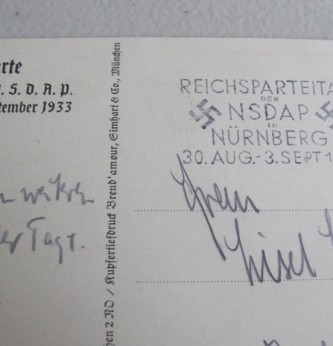 rte
. S. D. A. P.
tember 1933
weiteren
Tage.
pen 2 NO / Kupfertiefdruck Brend'amour, Simhart & Co., München
REICHSPARTEITA
DER
NSDAP
IN
NÜRNBERG
30. AUG.-3. SEPT.1
Lisel